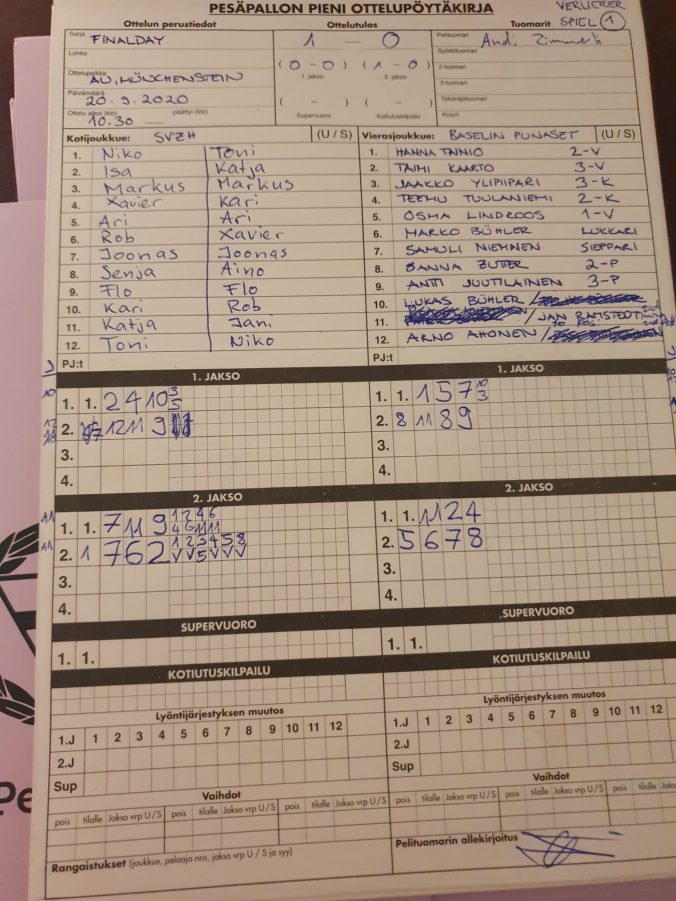 PESÄPALLON PIENI OTTELUPÖYTÄKIRJA
VERLIERER
SPIEL 1
Ottelun perustiedot Ottelutulos Tuomarit
Sarja FINALDAY
Lohko
Ottelupaikka AU, MÜNCHENSTEIN
Päivämäärä 20.9.2020
Ottelu alkoi (klo) 10.30 — päättyi (klo)
1 — 0
(0 – 0) (1 – 0)
1. jakso 2. jakso
( – ) ( – )
Supervuoro Kotiutuskilpailu
Pelituomari Andi
Syöttötuomari
2-tuomari
3-tuomari
Takarajatuomari
Kirjuri
Kotijoukkue: SVZH (U / S)
1. Niko Toni
2. Isa Katja
3. Markus Markus
4. Xavier Kari
5. Ari Ari
6. Rob Xavier
7. Joonas Joonas
8. Senja Aino
9. Flo Flo
10. Kari Rob
11. Katja Jani
12. Toni Niko
PJ:t
Vierasjoukkue: BASELIN PUNASET (U / S)
1. HANNA TAINIO 2-V
2. TAIMI KAARTO 3-V
3. JAAKKO YLIPIIPARI 3-K
4. TEEMU TUULANIEMI 2-K
5. OSMA LINDROOS 1-V
6. MARKO BÜHLER LUKKARI
7. SAMULI NIEHNEN SIEPPARI
8. SANNA ZUTER 2-P
9. ANTTI JUUTILAINEN 3-P
10. LUKAS BÜHLER /
11. / JAN RAMSTEDT
12. ARNO AHONEN /
PJ:t
1. JAKSO
1. 1. 2 4 10 3 5
2. 12 11 9
3.
4.
1. JAKSO
1. 1. 1 5 7 10 3
2. 8 11 8 9
3.
4.
2. JAKSO
1. 1. 7 11 9 1 2 4 6
4 6 11 11
2. 1 7 6 2 1 2 3 4 5 8
V V 5 V V V
3.
4.
2. JAKSO
1. 1. 11 2 4
2. 5 6 7 8
3.
4.
SUPERVUORO
1. 1.
SUPERVUORO
1. 1.
KOTIUTUSKILPAILU
KOTIUTUSKILPAILU
Lyöntijärjestyksen muutos
1.J 1 2 3 4 5 6 7 8 9 10 11 12
2.J
Sup
Lyöntijärjestyksen muutos
1.J 1 2 3 4 5 6 7 8 9 10 11 12
2.J
Sup
Vaihdot
pois tilalle Jakso vrp U / S pois tilalle Jakso vrp U / S pois tilalle Jakso vrp U / S
Vaihdot
pois tilalle Jakso vrp U / S pois tilalle Jakso vrp U / S pois tilalle Jakso vrp U / S
Rangaistukset (joukkue, pelaaja nro, jakso vrp U / S ja syy)
Pelituomarin allekirjoitus
Pe